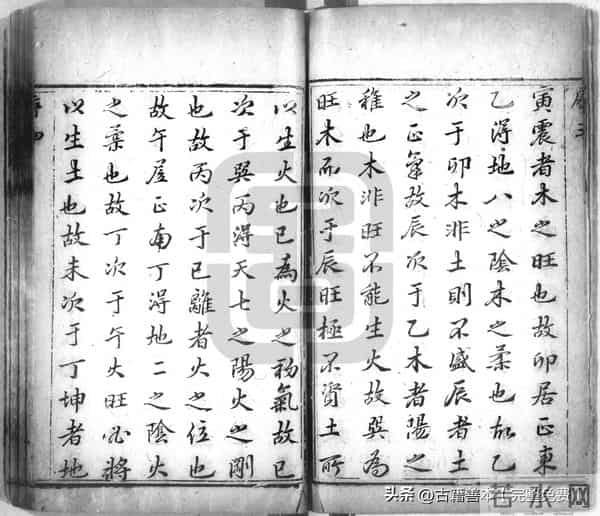 寅震者木之旺也故卯居正東
乙得地八之陰木之柔也故乙
次于卯木非土則不盛辰者土
之正氣故辰次于乙木者陽之
稚也木非旺不能生火故巽為
旺木而次于辰旺極不資土所
以生火也巳為火之初氣故巳
次于巽丙得天七之陽火之剛
也故丙次于巳離者火之位也
故午居正南丁得地二之陰火
之柔也故丁次于午火旺必將
以生土也故未次于丁坤者地
序四
头条 @古籍善本